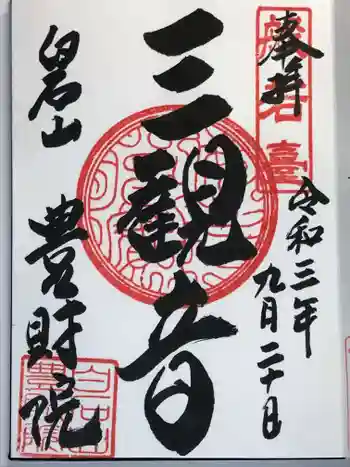 奉拝
令和三年
九月二十日
三観音
白石山
豊財院